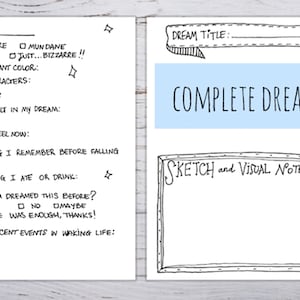 RE □ MUNDANE
□ JUST...BIZARRE!!
ANT COLOR:
RACTERS:
LT IN MY DREAM:
EEL NOW:
G I REMEMBER BEFORE FALLING
G I ATE OR DRINK:
A DREAMED THIS BEFORE?
□ NO □ MAYBE
E WAS ENOUGH, THANKS!
CENT EVENTS IN WAKING LIFE:
DREAM TITLE:
COMPLETE DREA
SKETCH and VISUAL NOT